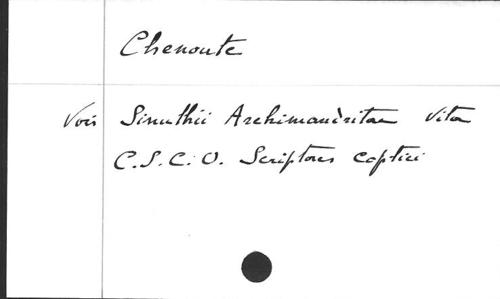 Chenoute
Voir Sinuthii Archimandritae Vita
C.S.C.O. Scriptores coptici